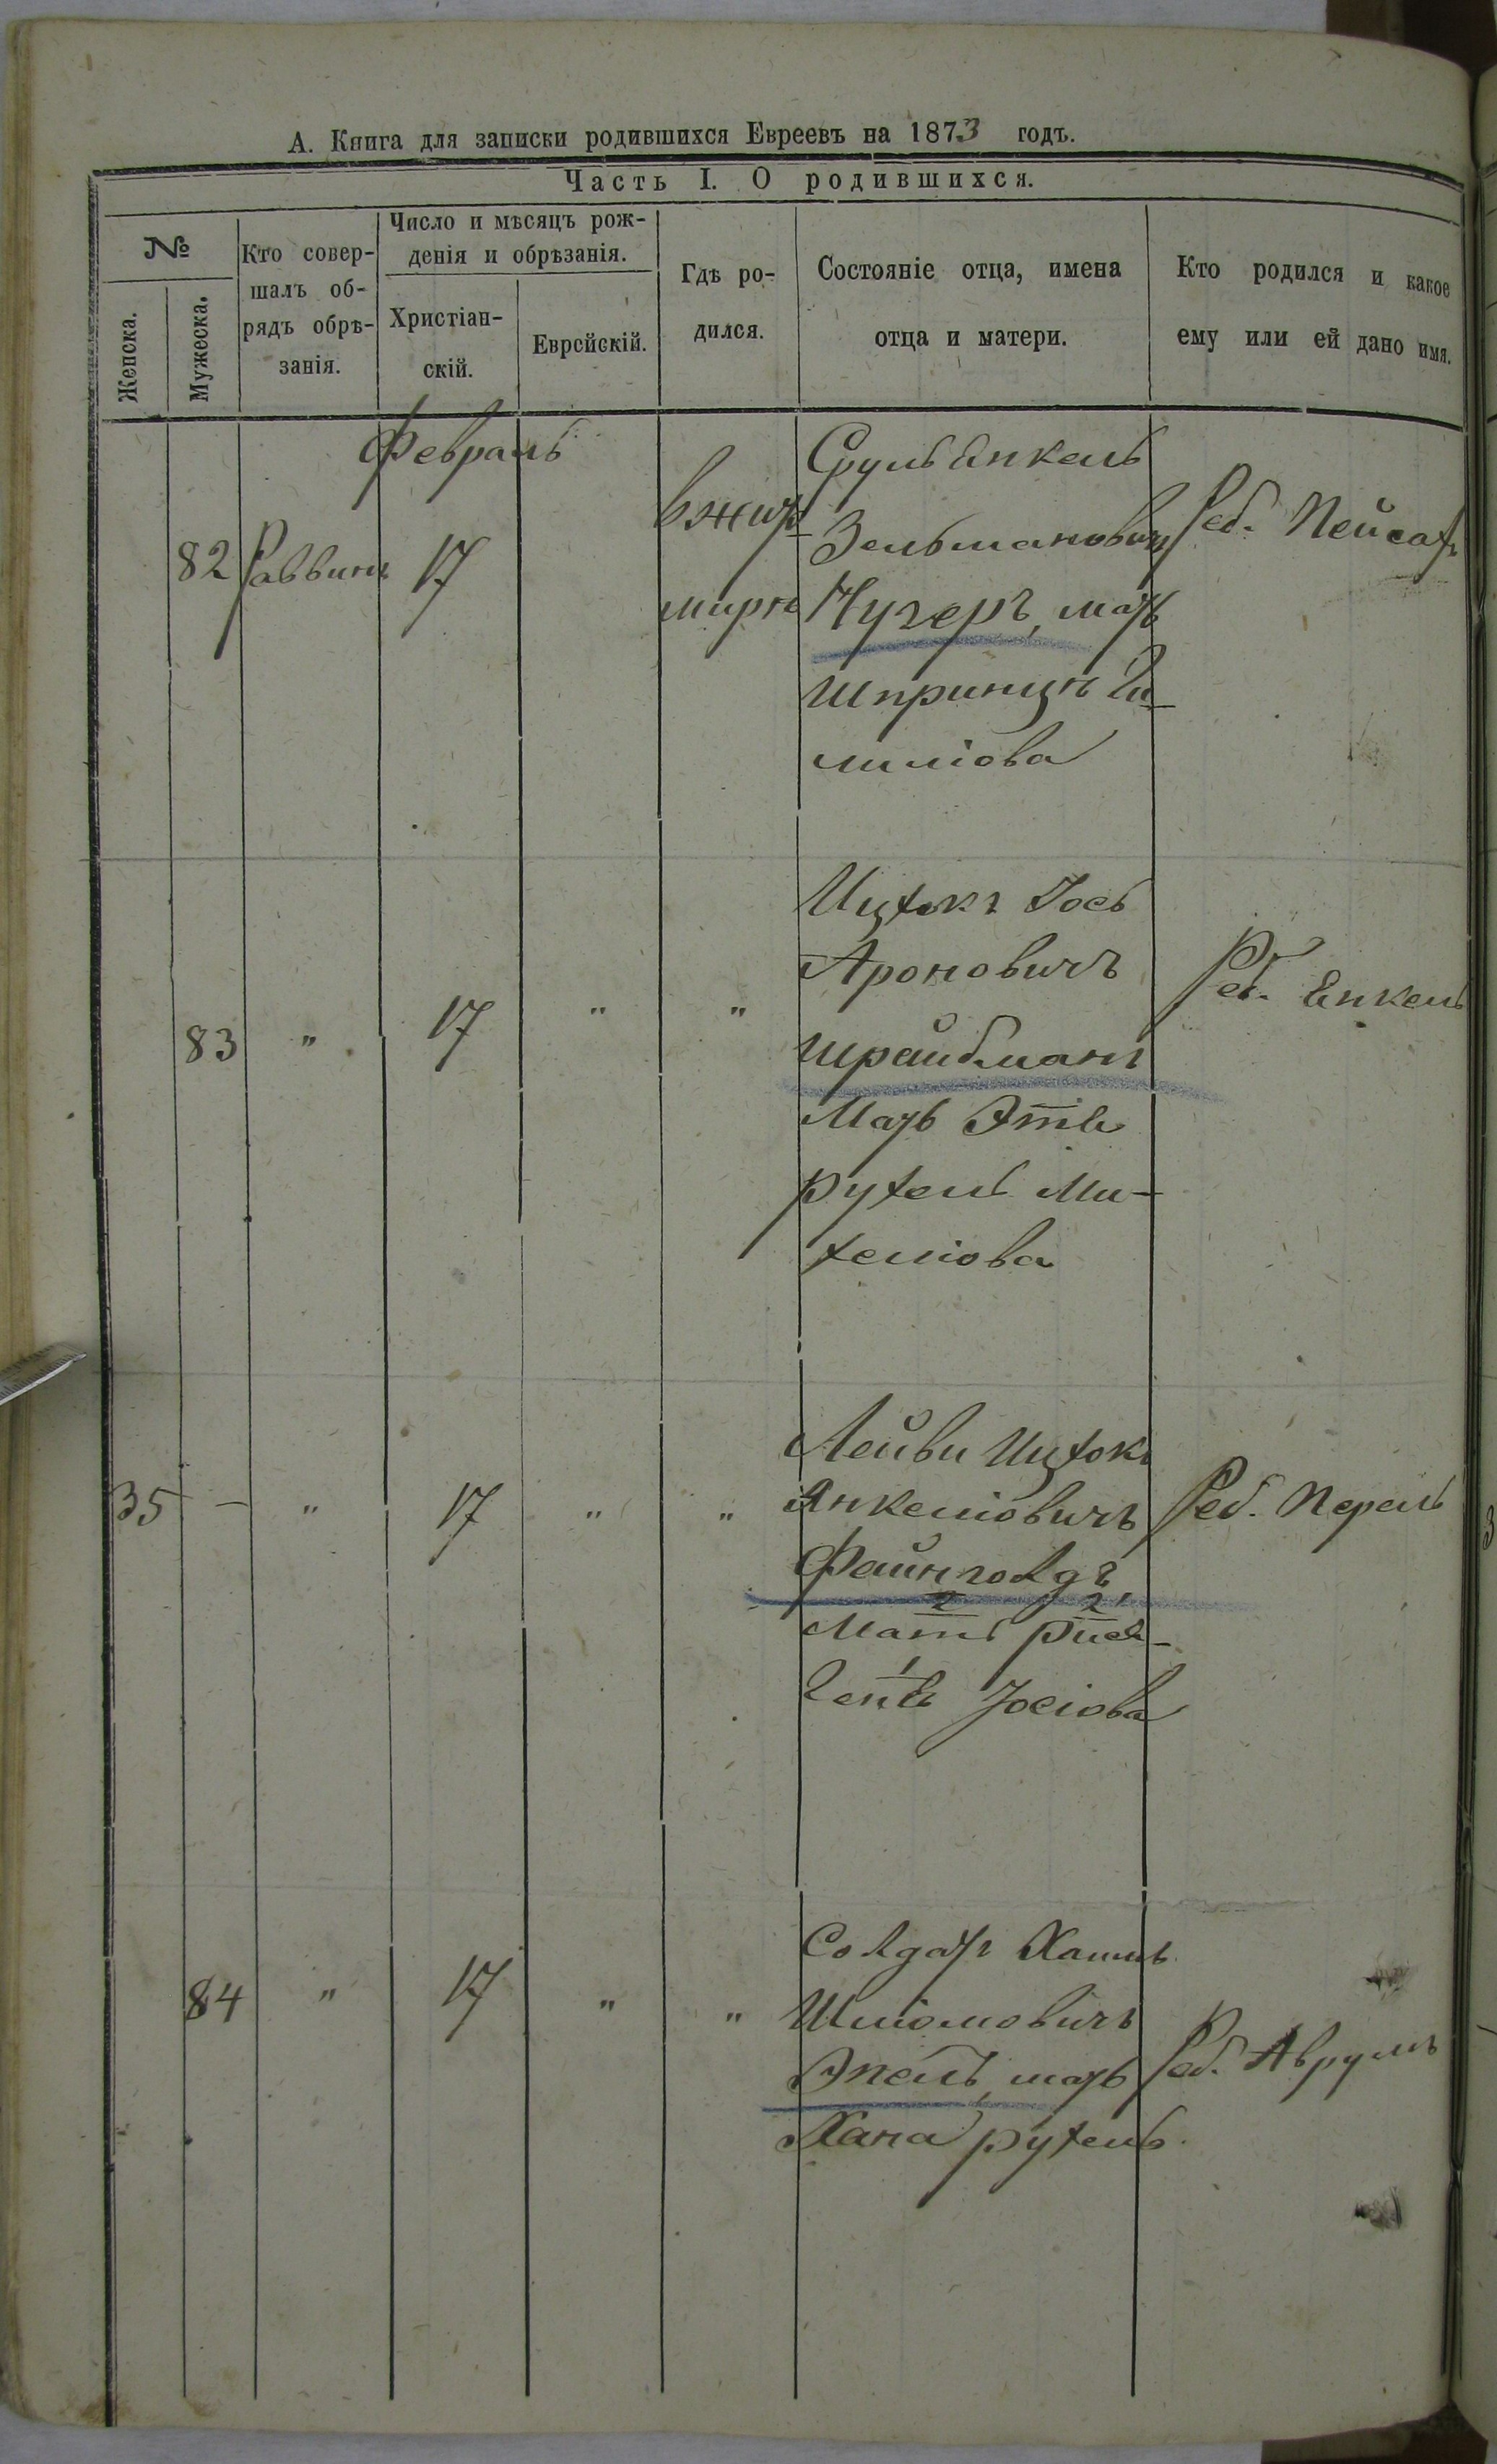 А. Книга для записки родившихся Евреевъ на 1873 годъ.
Часть I. О родившихся.
№
Женска.
Мужеска.
Кто совер-
шалъ об-
рядъ обрѣ-
занія.
Число и мѣсяцъ рож-
денія и обрѣзанія.
Христіан-
скій.
Еврейскій.
Гдѣ ро-
дился.
Состояніе отца, имена
отца и матери.
Кто родился и какое
ему или ей дано имя.
Февраль
82 Раввинъ 17
вжит
мирѣ
Сруль Янкель
Зельмановичъ
Чугеръ, мать
Шпринцъ
лиліова
Реб. Пейсахъ
83 " 17 " "
Ицхокъ Іось
Ароновичъ
Шрайбманъ
Мать Этль
Рухель Ми-
хеліова
Реб. Енкель
35 - " 17 " "
Лейви Ицхокъ
Янкеліовичъ
Файнголдъ
2 2
Мать
1
Іосіова
Реб. Перель
84 " 17 " "
Солдатъ Хаимъ
Шліомовичъ
Эпель, мать
Хана Рухель.
Реб. Аврумъ